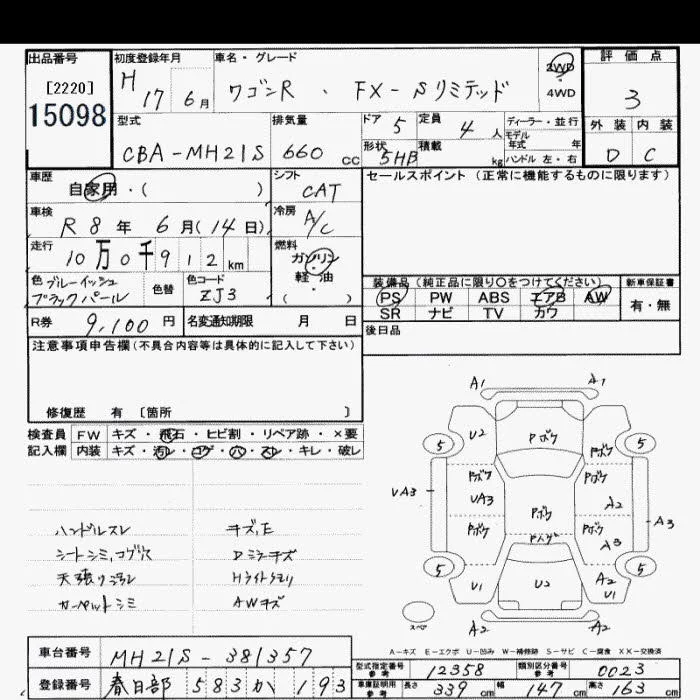 出品番号 初度登録年月 車名・グレード 2WD 評価点
[2220] H 17 6月 ワゴンR . FX-Sリミテッド 4WD 3
15098 型式 排気量 ドア 5 定員 4人 ディーラー・並行 外装 内装
CBA-MH21S 660cc 形状 5HB 積載 kg モデル年式 年 D C
ハンドル 左・右
車歴 自家用・( ) シフト CAT セールスポイント (正常に機能するものに限ります)
車検 R8年 6月(14日) 冷房 A/C
走行 10万0千912km 燃料 ガソリン
軽・油
( )
色 ブルーイッシュブラックパール 色替 色コード ZJ3 装備品 (純正品に限り〇をつけてください) 新車保証書
PS PW ABS エアB AW 有・無
SR ナビ TV カワ
R券 9,100円 名変通知期限 月 日 後日品
注意事項申告欄(不具合内容等は具体的に記入して下さい)
修復歴 有 〔箇所 〕
検査員 FW キズ・飛石・ヒビ割・リペア跡・×要
記入欄 内装 キズ・汚レ・コゲ・穴・スレ・キレ・破レ
ハンドルスレ キズ,E
シートシミ,コゲ穴 Dミラーキズ
天張り汚レ Hライトクモリ
カーペットシミ AWキズ
A1 A1
U2 Pボケ
5 5
Pボケ Pボケ
VA3 VA3 A2
Pボケ Pボケ Pボケ A3
Pハゲ A3
5 5
U1 U2 A2
U1
スペア A2 A2
A-キズ E-エクボ U-凹み W-補修跡 S-サビ C-腐食 XX-交換済
車台番号 MH21S-381357 型式指定番号 参考 12358 類別区分番号 参考 0023
登録番号 春日部 583 か 193 車庫証明用 参考 長さ 339cm 幅 147cm 高さ 163cm